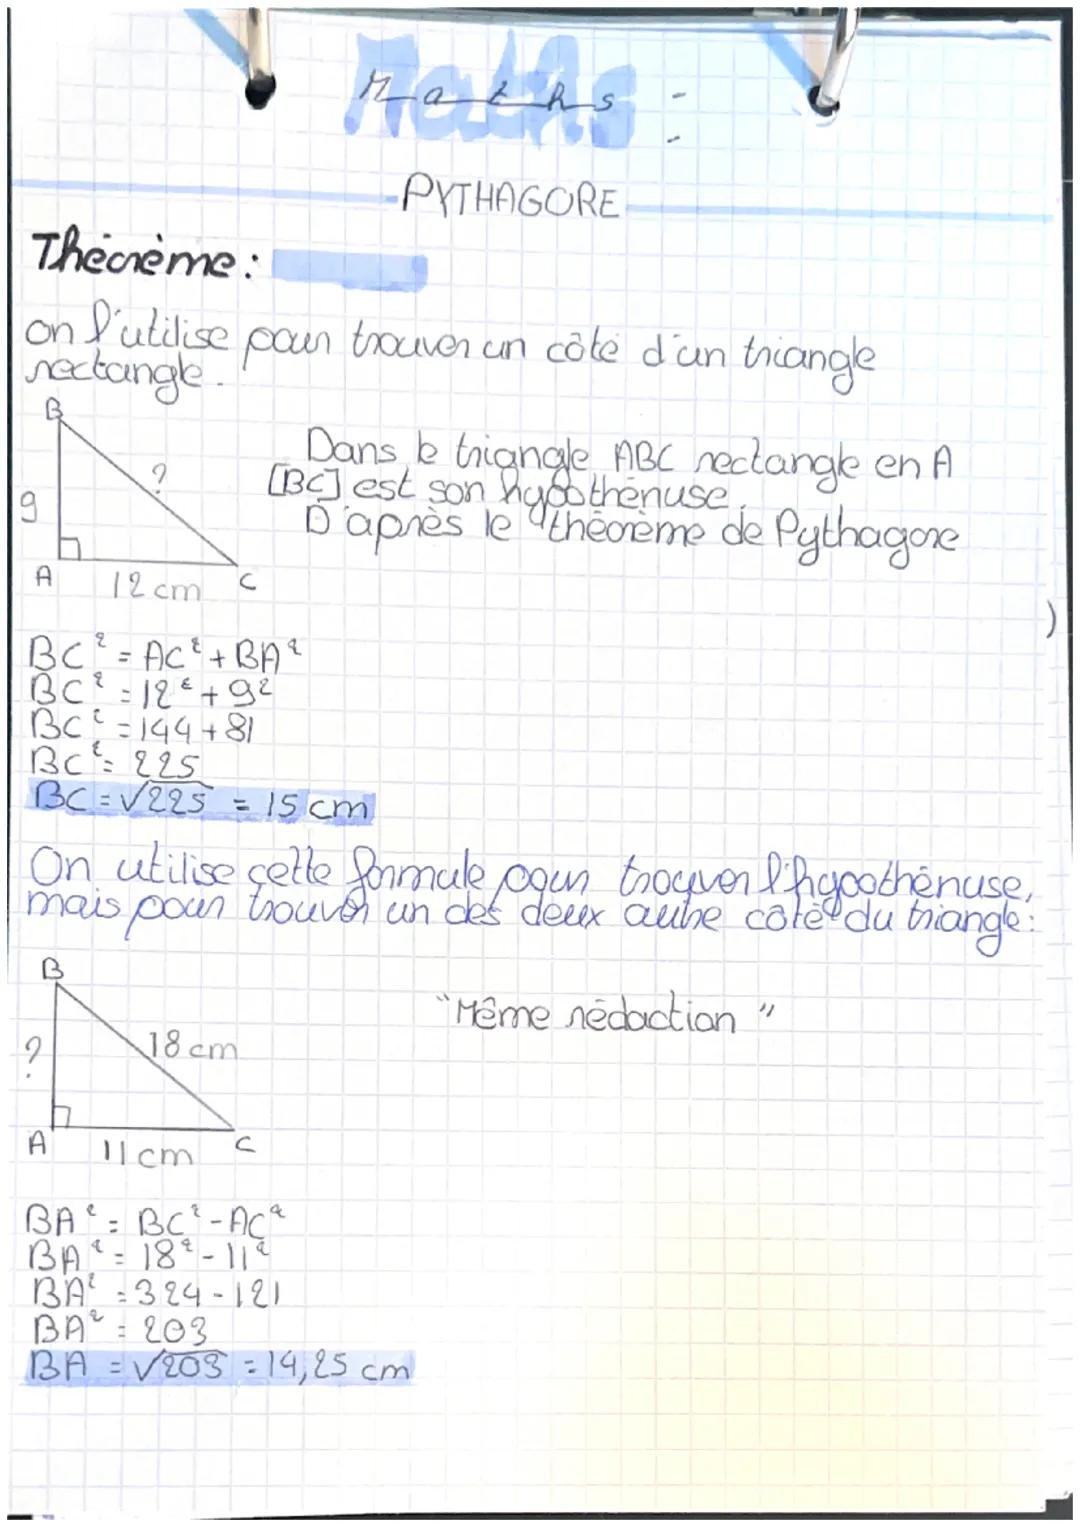 Maths :
PYTHAGORE
Théorème :
on l'utilise pour trouver un côté d'un triangle
rectangle.
B
?
9
A
12 cm
C
Dans le triangle ABC rectangle en A
[BC] est son hypothénuse.
D'après le théorème de Pythagore
BC² = AC² + BA²
BC² = 12² + 9²
BC² = 144 + 81
BC² = 225
BC = √225 = 15 cm
On utilise cette formule pour trouver l'hypothénuse,
mais pour trouver un des deux autre côté du triangle :
B
?
18 cm
A
11 cm
C
"Même rédaction"
BA² = BC² - AC²
BA² = 18² - 11²
BA² = 324 - 121
BA² = 203
BA = √203 = 14,25 cm